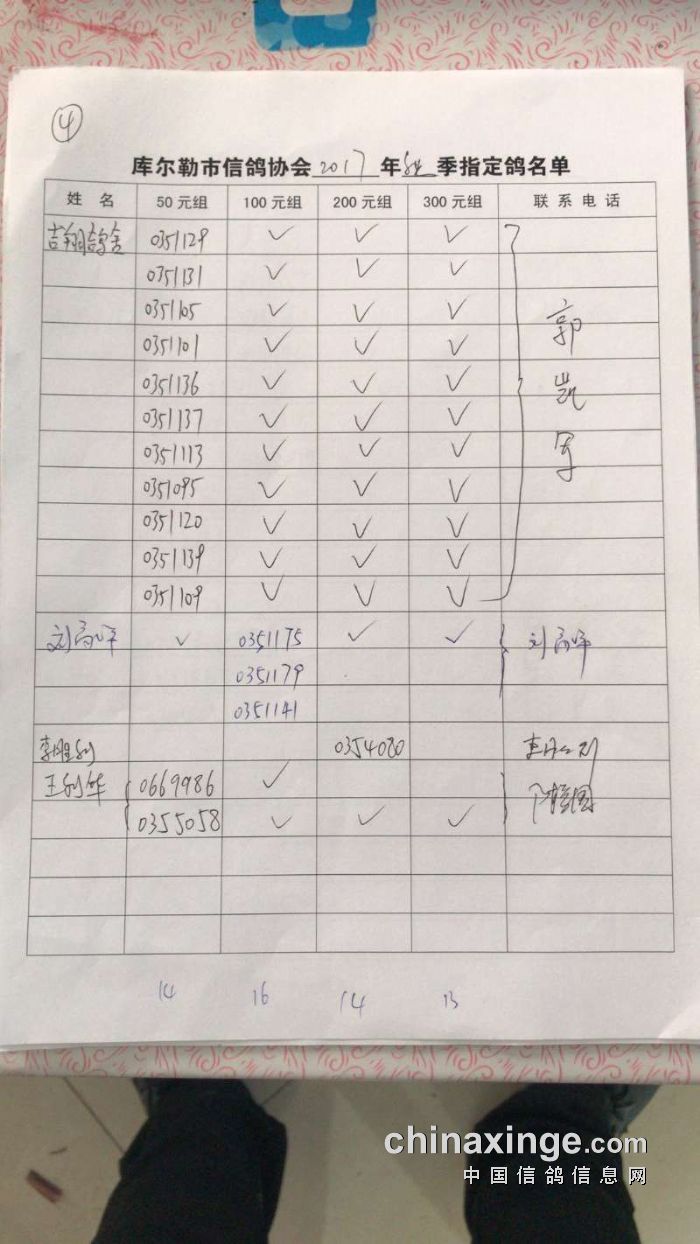 ④
库尔勒市信鸽协会 2017 年 季指定鸽名单
姓 名 50元组 100元组 200元组 300元组 联系电话
吉翔鸽舍 0351129 ✓ ✓ ✓
0351131 ✓ ✓ ✓
0351105 ✓ ✓ ✓
0351101 ✓ ✓ ✓
0351136 ✓ ✓ ✓
0351137 ✓ ✓ ✓
0351113 ✓ ✓ ✓
0351095 ✓ ✓ ✓
0351120 ✓ ✓ ✓
0351139 ✓ ✓ ✓
0351109 ✓ ✓ ✓
郭凯军
刘高峰 ✓ 0351175 ✓ ✓ 刘高峰
0351179
0351141
李胜利 0354080 李胜利
王利华 0669986 ✓
0355058 ✓ ✓ ✓
14 16 14 13
chinaxinge.com
中国信鸽信息网